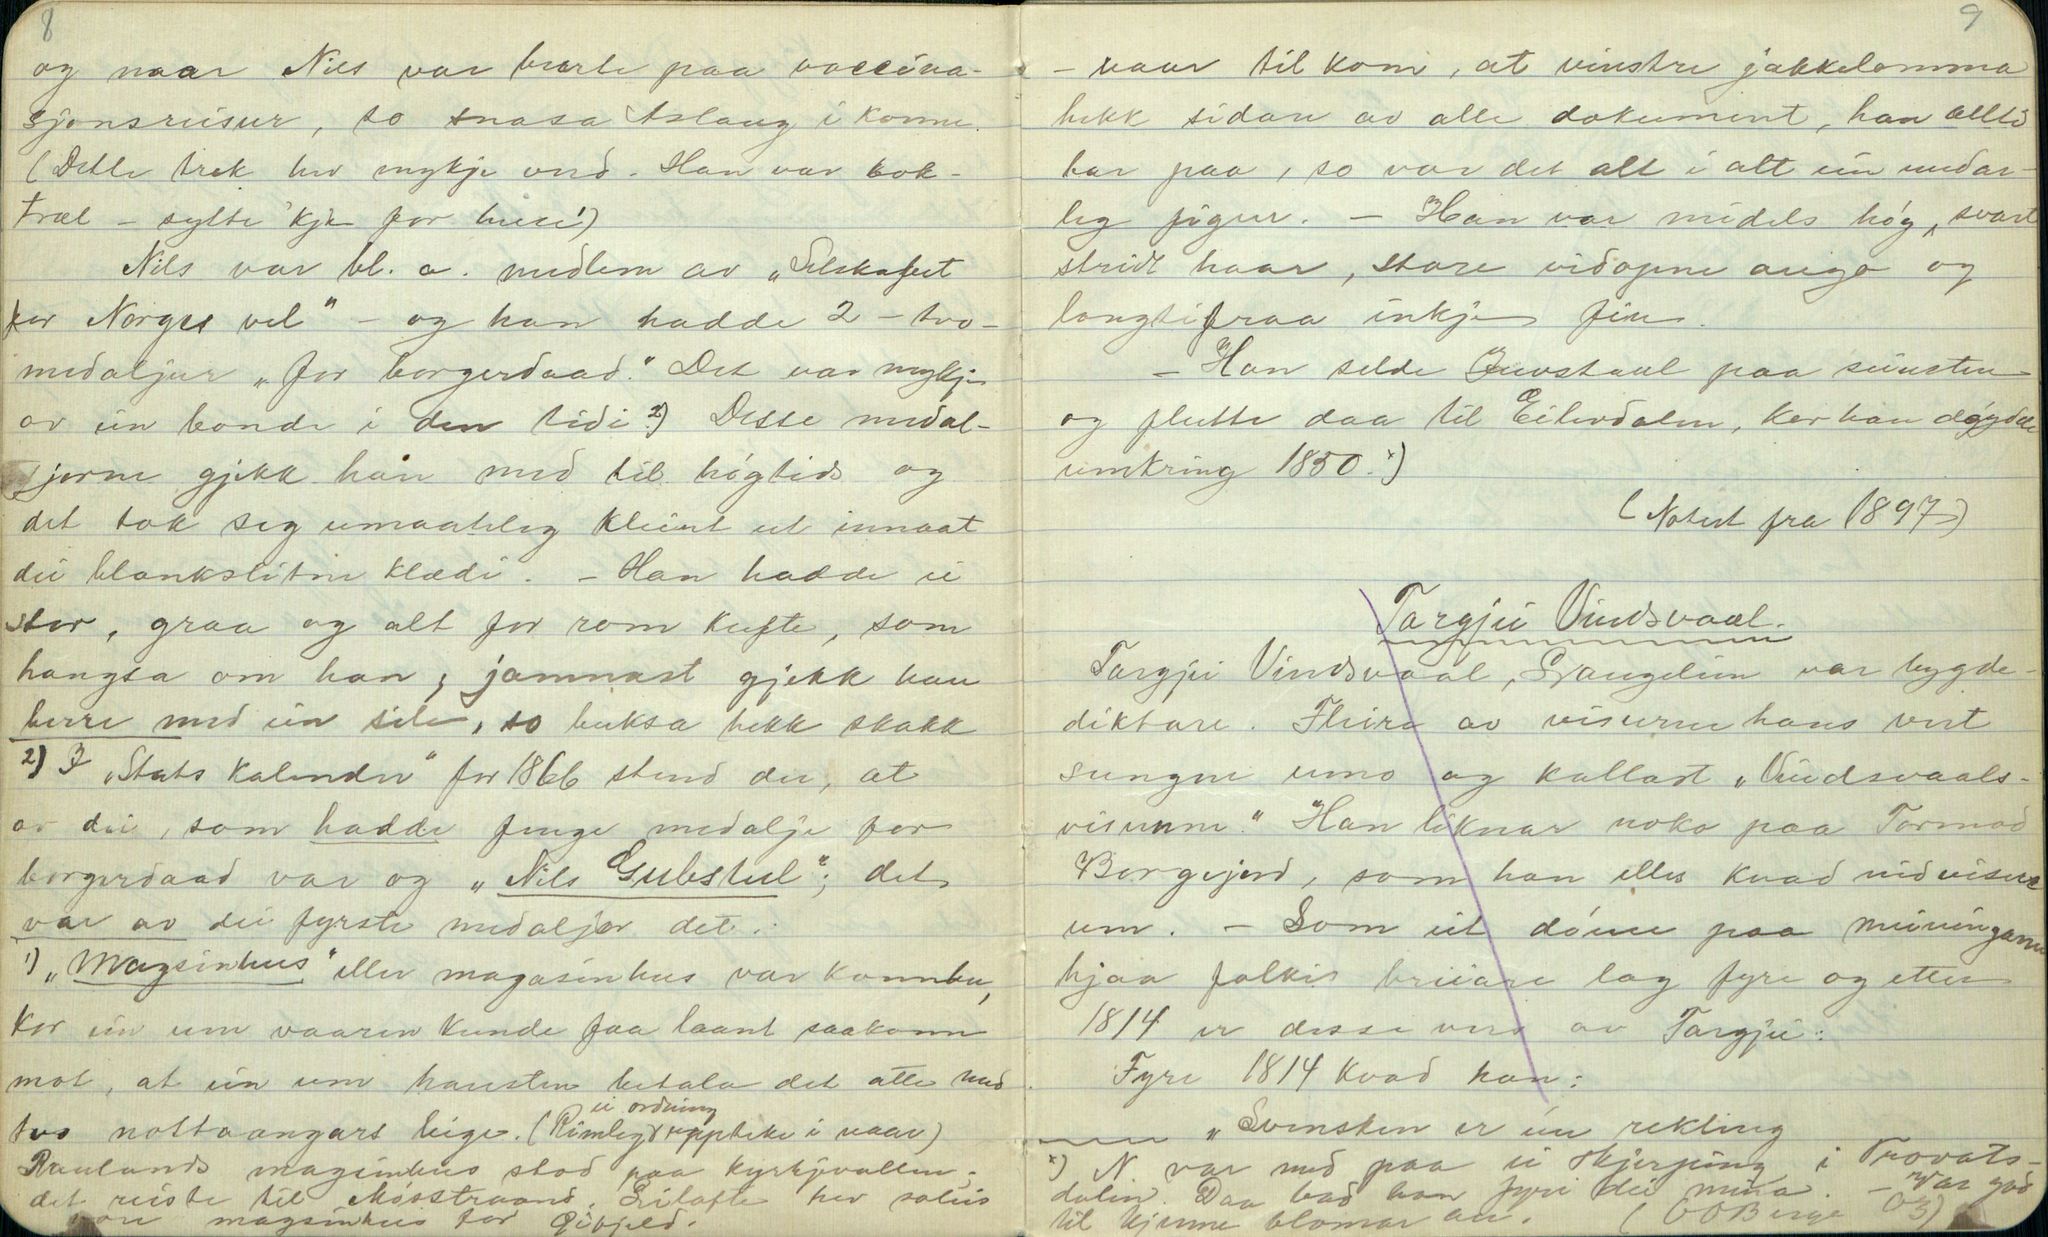 8
og naar Nils var burte paa vaccina-
sjonsreisur, so snasa Aslaug i konne.
(Dette trek hev mykje verd. Han var bok-
træl - sytte 'kje for huse!)
Nils var bl. a. medlem av „Selskapet
for Norges vel" - og han hadde 2 - tvo -
medaljur „for borgerdaad." Det var mykje
av ein bonde i den tidi.2) Desse medal-
jorne gjekk han med til høgtids og
det tok seg umaateleg kleint ut innaat
dei blankslitne klædi. - Han hadde ei
stor, graa og alt for rom kufte, som
hangsa om han, jamnast gjekk han
berre med ein sele, so buksa hekk skakk
2) I „Stats kalender" for 1866 stend der, at
av dei, som hadde fenge medalje for
borgerdaad var og „Nils Gubstul"; det
var av dei fyrste medaljor det.
1) „Magsinhus" eller magasinhus var kornbu,
kor ein um vaaren kunde faa laant saakorn
mot, at ein um hausten betala det atte med
tvo nottaangars leige. (Rimeleg ei ordning uppteke i naar)
Raulands magsinhus stod paa kyrkjevollen;
det reiste til Møsstraand. Seilofte hev soleis
vore magsinhus for
9
- naar til kom, at vinstre jakkelomma
hekk sidare av alle dokument, han alltid
bar paa, so var det alt i alt ein undar-
leg figur. - Han var midels høg, svart
stridt haar, store vidopne augo og
langtifraa inkje fin.
- Han selde Guvstaul paa seinsten
og flutte daa til Eilevdalen, kor han døydde
umkring 1850.x)
(Notert fra 1897)
Targjei Vindsvaal.
Targjei Vindsvaal, Svangelien var bygde-
diktare. Fleire av visurne hans vert
sungne umo og kallast „Vindsvaals-
visunne." Han liknar noko paa Tormod
Borgejord, som han elles kvad nidvisur
um. - Som eit døme paa meiningane
hjaa folkis breiare lag fyre og etter
1814 er desse vers av Targjei:
Fyre 1814 kvad han:
„Svensken er ein rekling
x) N. var med paa ei skjerping i Trovats-
dalen. Daa bad han fyri dei mina. - Var god
til kjenne blomar au. (OOBerge 03)